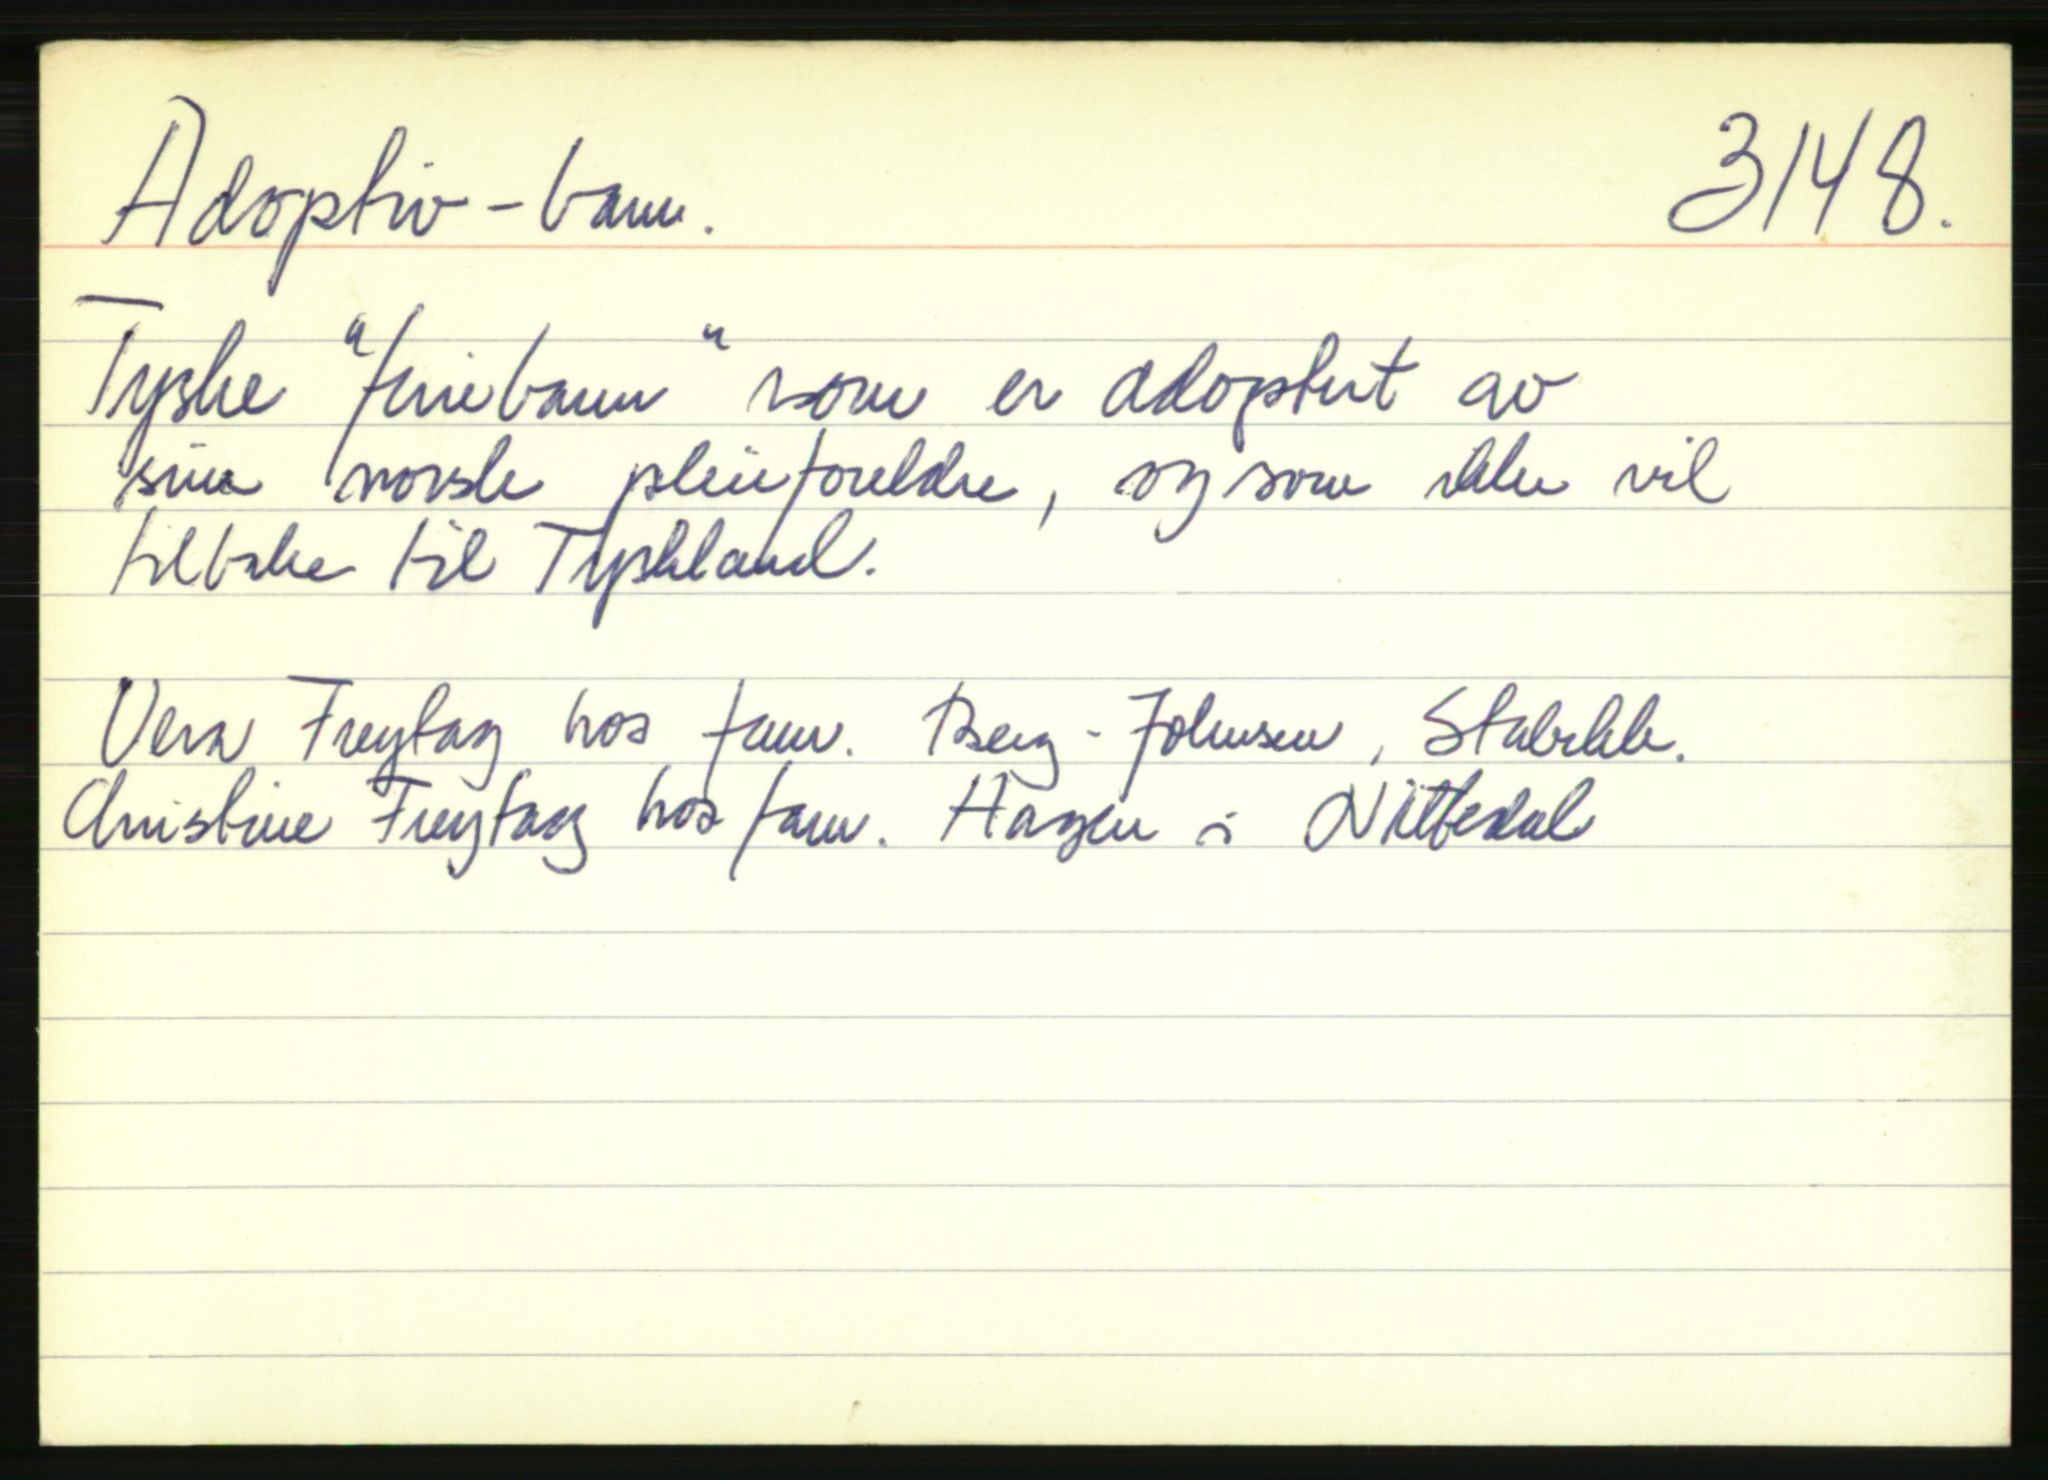 Adoptiv-barn. 3148.
Tyske "feriebarn" som er adoptert av
sine norske pleieforeldre, og som ikke vil
tilbake til Tyskland.
Vera Freytag hos fam. Berg-Johnsen, Stabekk.
Christine Freytag hos fam. Hagen i Nittedal